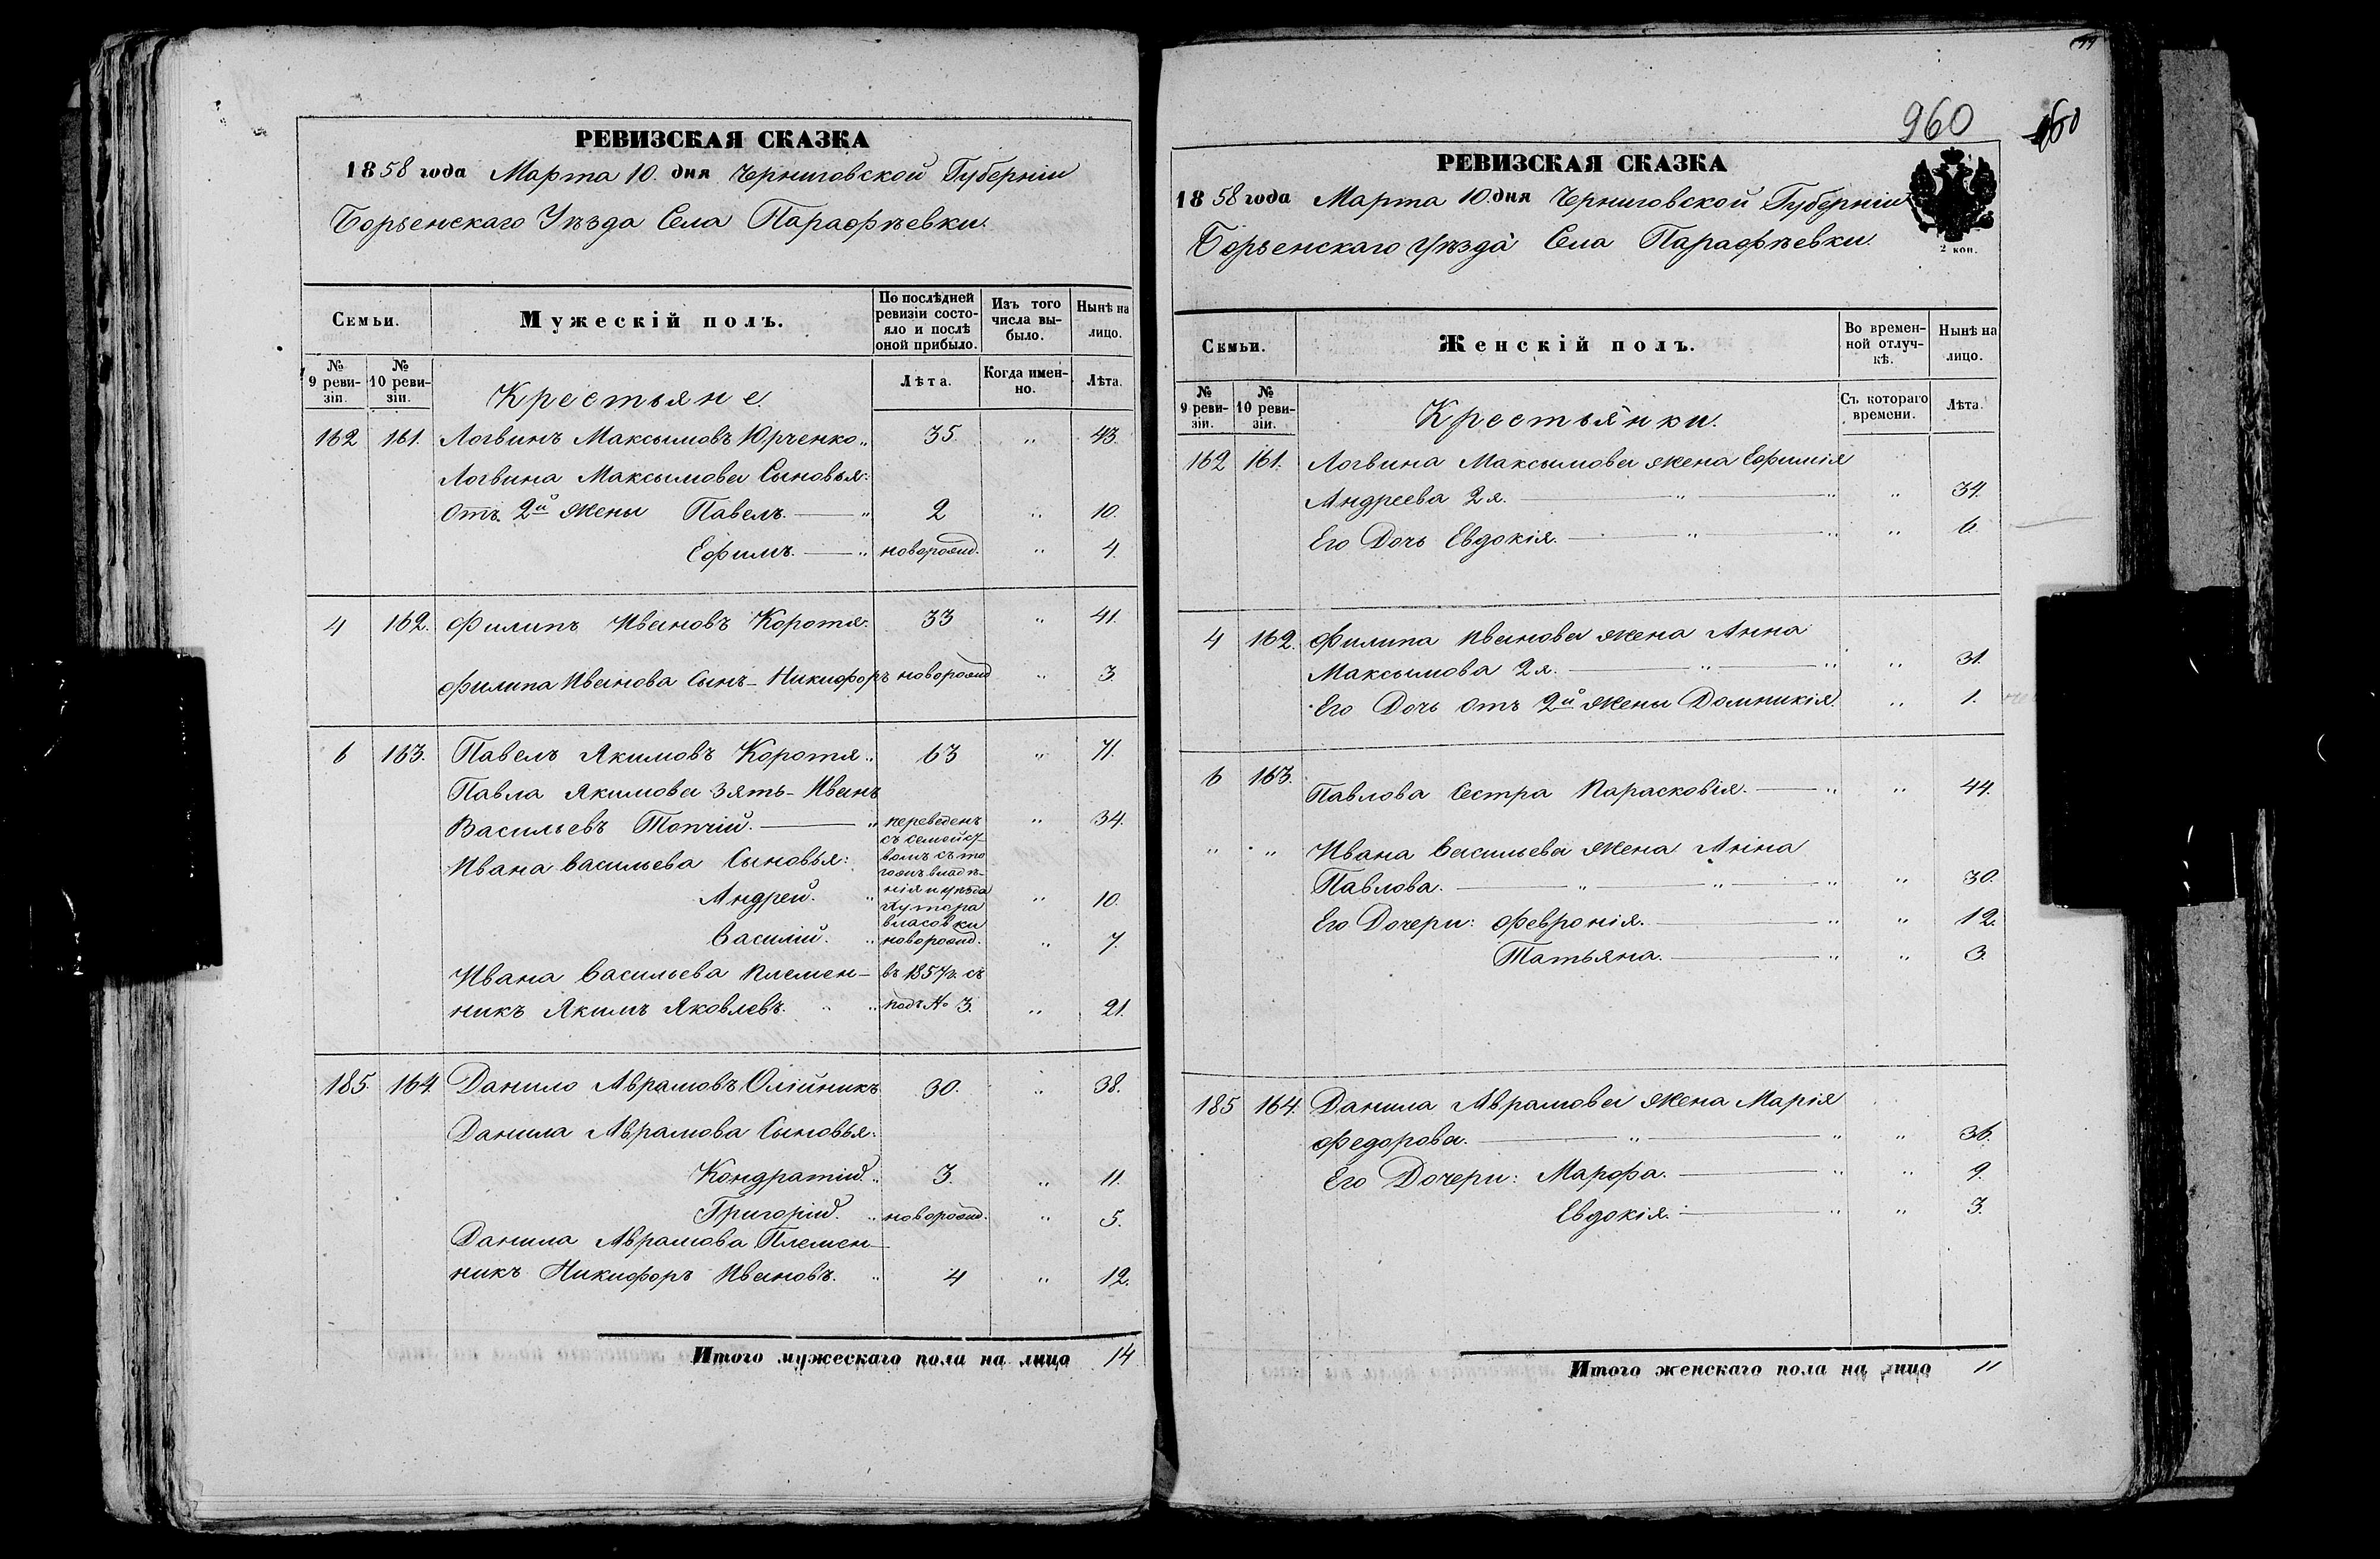 РЕВИЗСКАЯ СКАЗКА
1858 года Марта 10. дня Черниговской Губерніи
Борзенскаго Уѣзда Села Парафѣевки.
Семьи.
Мужескій полъ.
По послѣдней ревизіи состояло и послѣ оной прибыло.
Изъ того числа выбыло.
Нынѣ на лицо.
№ 9 ревизіи.
№ 10 ревизіи.
Крестьяне.
Лѣта.
Когда именно.
Лѣта.
162 161. Логвинъ Максымовъ Юрченко „ 35 „ 43.
Логвина Максымова Сыновья:
Отъ 2й жены Павелъ. — „ 2 „ 10.
Ефимъ. — „ новорожд. „ 4.
4 162. Филипъ Ивановъ Коротя. 33 „ 41.
Филипа Иванова Сынъ - Никифоръ новорожд „ 3.
6 163. Павелъ Якимовъ Коротя „ 63 „ 71.
Павла Якимова Зять - Иванъ
Васильевъ Топчій. — „ переведенъ „ 34.
съ семейст-
Ивана Васильева Сыновья: вомъ съ то
гожъ владѣ-
нія и уѣзда
Андрей. „ хутора „ 10.
власовки
Василій. „ новорожд. „ 7.
Ивана Васильева Племен- въ 1857 г. съ
никъ Якимъ Яковлевъ. „ „ подъ № 3. „ 21.
185. 164. Данило Аврамовъ Олійникъ 30. „ 38.
Данила Аврамова Сыновья:
Кондратій. „ 3. „ 11.
Григорій. „ новорожд. „ 5.
Данила Аврамова Племен-
никъ Никифоръ Ивановъ. „ 4 „ 12.
Итого мужескаго пола на лицо 14
960
960
РЕВИЗСКАЯ СКАЗКА
1858 года Марта 10. дня Черниговской Губерніи
Борзенскаго Уѣзда Села Парафѣевки.
2 коп.
Семьи.
Женскій полъ.
Во временной отлучкѣ.
Нынѣ на лицо.
№ 9 ревизіи.
№ 10 ревизіи.
Крестьянки.
Съ котораго времени.
Лѣта.
162 161. Логвина Максымова жена Ефимія
Андреева 2я. — „ — „ „ 34.
Его Дочь Евдокія. — „ — „ „ 6.
4 162. Филипа Иванова жена Анна
Максымова 2я. — „ — „ „ 31.
Его Дочь отъ 2й жены Домникія. „ 1.
6 163.
Павлова Сестра Парасковія. — „ „ 44.
„ „ Ивана Васильева жена Анна
Павлова. — „ — „ — „ „ 30.
Его Дочери: Февронія. — „ „ 12.
Татьяна. — „ „ 3.
185 164. Данила Аврамова жена Марія
Федорова. — „ — „ „ 36.
Его Дочери: Марфа. — „ „ 9.
Евдокія. — „ „ 3.
Итого женскаго пола на лицо 11